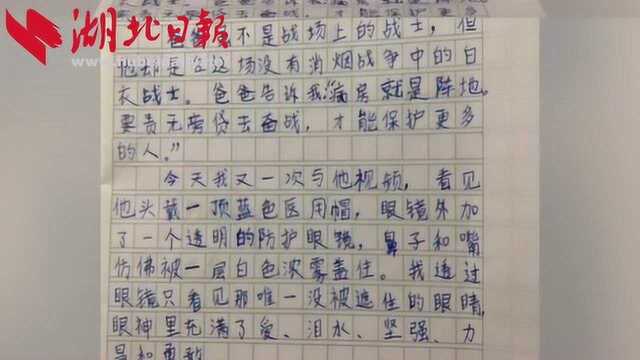 湖北日报
爸爸 不是战场上的战士，但
他却是在这场没有消烟战争中的白
衣战士。爸爸告诉我病房就是阵地。
要责无旁贷去奋战，才能保护更多
的人。”
今天我又一次与他视频，看见
他头戴一顶蓝色医用帽，眼镜外加
了一个透明的防护眼镜，鼻子和嘴
仿佛被一层白色浓雾盖住。我透过
眼镜只看见那唯一没被遮住的眼睛，
眼神里充满了爱、泪水、坚强、力
量和勇敢